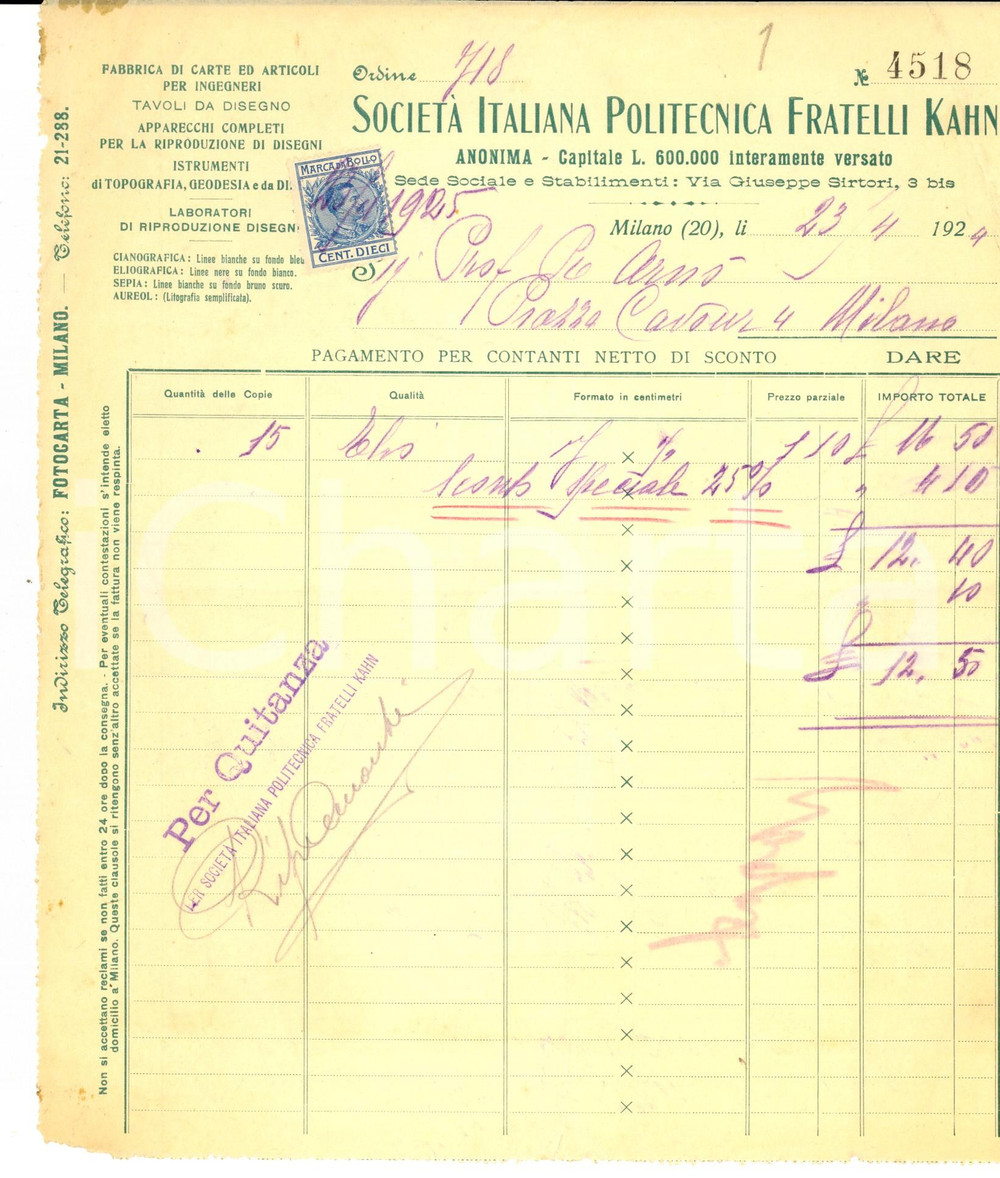 1
FABBRICA DI CARTE ED ARTICOLI
PER INGEGNERI
TAVOLI DA DISEGNO
APPARECCHI COMPLETI
PER LA RIPRODUZIONE DI DISEGNI
ISTRUMENTI
di TOPOGRAFIA, GEODESIA e da DI.
LABORATORI
DI RIPRODUZIONE DISEGN
CIANOGRAFICA: Linee bianche su fondo bleu
ELIOGRAFICA: Linee nere su fondo bianco.
SEPIA: Linee bianche su fondo bruno scuro.
AUREOL: (Litografia semplificata).
Ordine 718
№ 4518
SOCIETÀ ITALIANA POLITECNICA FRATELLI KAHN
ANONIMA - Capitale L. 600.000 interamente versato
Sede Sociale e Stabilimenti: Via Giuseppe Sirtori, 3 bis
MARCA DA BOLLO
CENT. DIECI
1925
Milano (20), li 23/4 1924
Sig Prof
Piazza Cavour 4 Milano
PAGAMENTO PER CONTANTI NETTO DI SCONTO
DARE
Quantità delle Copie Qualità Formato in centimetri Prezzo parziale IMPORTO TOTALE
15 Elio × 1 10 £ 16 50
Sconto speciale 25% " 4 10
£ 12. 40
" 10
£ 12. 50
Per Quitanza
PER SOCIETÀ ITALIANA POLITECNICA FRATELLI KAHN
Indirizzo Telegrafico: FOTOCARTA - MILANO. — Telefono: 21-288.
Non si accettano reclami se non fatti entro 24 ore dopo la consegna. - Per eventuali contestazioni s'intende eletto
domicilio a Milano. Queste clausole si ritengono senz'altro accettate se la fattura non viene respinta.
Charta